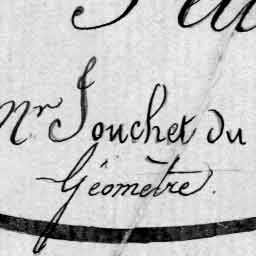 Mr Jouchet du
Géomètre.